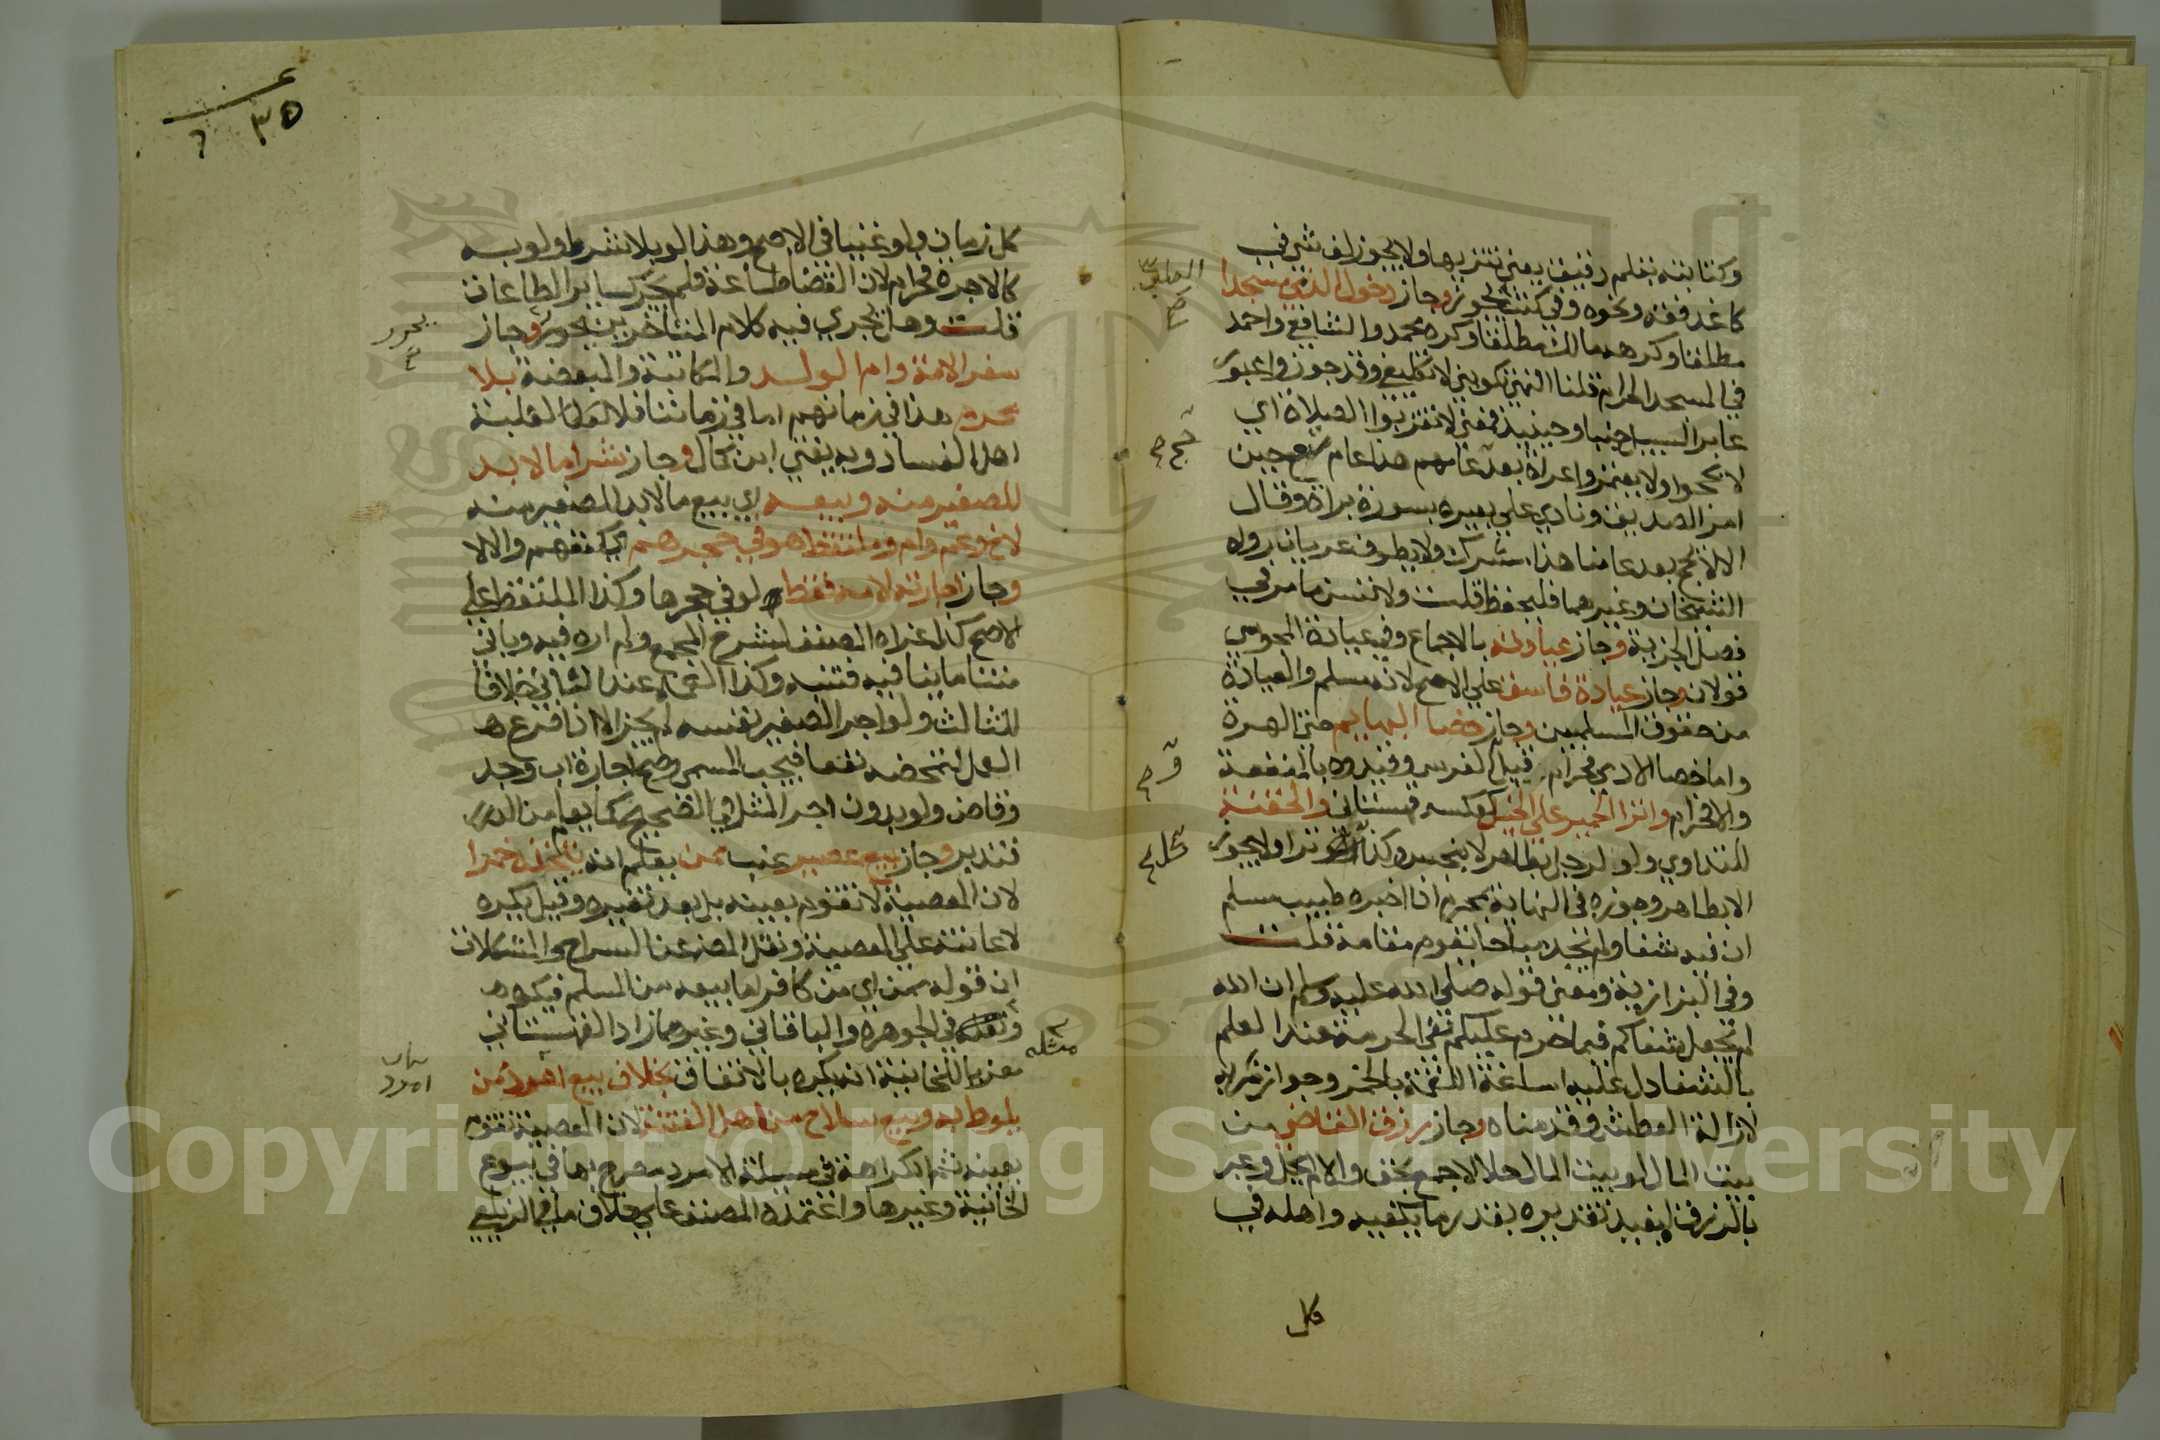 وكتابته بقلم رقيق يعني تنزيها ولا يجوز لف شي في
كاغد فقه ونحوه وفي كتب يجوز وجاز دخول الذمي مسجدا
مطلقا وكرهه مالك مطلقا وكره محمد والشافعي واحمد
في المسجد الحرام قلنا النهي تكويني لا تكليفي وقد جوزوا عبور
عابر السبيل جنبا وحينيذ فمعني لا تقربوا الصلاة اي
لا يحجوا ولا يعتمروا عراة بعد عامهم هذا عام تسع حين
امر الصديق ونادي علي بهذه بسورة براة وقال
الا لا يحج بعد عامنا هذا مشرك ولا يطوف عريان رواه
الشيخان وغيرهما فليحفظ قلت ولا تنس ما مر في
فصل الجزية وجاز عيادته بالاجماع وفي عيادة المجوسي
قولان وجاز عيادة فاسق علي الاصح لانه مسلم والعيادة
من حقوق المسلمين وجاز خصا البهايم حتي الهرة
واما خصا الادمي فحرام قيل والفرس وقيدوه بالمنفعة
والا فحرام وانزا الحمير علي الخيل كعكسه قهستاني والحقنة
للتداوي ولو لرجل بطاهر لا بنجس وكذا كل تداو لا يجوز
الا بطاهر وجوزه في النهاية بمحرم اذا اخبره طبيب مسلم
ان فيه شفا ولم يجد مباحا يقوم مقامه قلت
وفي البزازية ومعني قوله صلي الله عليه وسلم ان الله
لم يجعل شفاكم فيما حرم عليكم نفي الحرمة عند العلم
بالشفا دل عليه اساغة اللقمة بالخمر وجواز شربه
لازالة العطش وقد قدمناه وجاز رزق القاضي من
بيت المال لو بيت المال حلالا جمع بحق والا لم يحل وعبر
بالرزق ليفيد تقديره بقدر ما يكفيه واهله في
كل
٣٥
كل زمان ولو غنيا في الاصح وهذا لو بلا شرط ولو به
كالاجرة فحرام لان القضا طاعة فلم يجز كساير الطاعات
قلت وهل يجري فيه كلام المتاخرين يحرر وجاز
سفر الامة وام الولد والمكاتبة والمبعضة بلا
محرم هذا في زمانهم اما في زماننا فلا لغلبة
اهل الفساد وبه يفتي ابن كمال وجاز شرا ما لا بد
للصغير منه وبيعه اي بيع ما لا بد للصغير منه
لاخ وعم وام وملتقط هو في حجرهم اي كنفهم والا لا
وجاز اجارته لامه فقط لو في حجرها وكذا الملتقط علي
الاصح كذا عزاه المصنف لشرح المجمع ولم اره فيه وياتي
متنا ما ينافيه فتنبه وكذا العم عند الثاني خلافا
للثالث ولو اجر الصغير نفسه لم يجز الا اذا فرغ
العمل لتمحضه نفعا فيجب المسمي وصح اجارة اب وجد
وقاض ولو بدون اجر المثل في الصحيح كما يعلم من الدرر
فتدبر وجاز بيع عصير عنب ممن يعلم انه يتخذه خمرا
لان المعصية لا تقوم بعينه بل بعد تغيره وقيل يكره
لاعانته علي المعصية ونقل المص عن السراج والمشكلات
ان قوله ممن اي من كافر اما بيعه من المسلم فيكره
مثله
ونقله في الجوهرة والباقاني وغيرهما زاد القهستاني
معزيا للخانية انه يكره بالاتفاق بخلاف بيع امرد ممن
يلوط به وبيع سلاح من اهل الفتنة لان المعصية تقوم
بعينه ثم الكراهة في مسيلة الامرد مصرح بها في بيوع
الخانية وغيرها واعتمده المصنف علي خلاف ما في الزيلعي